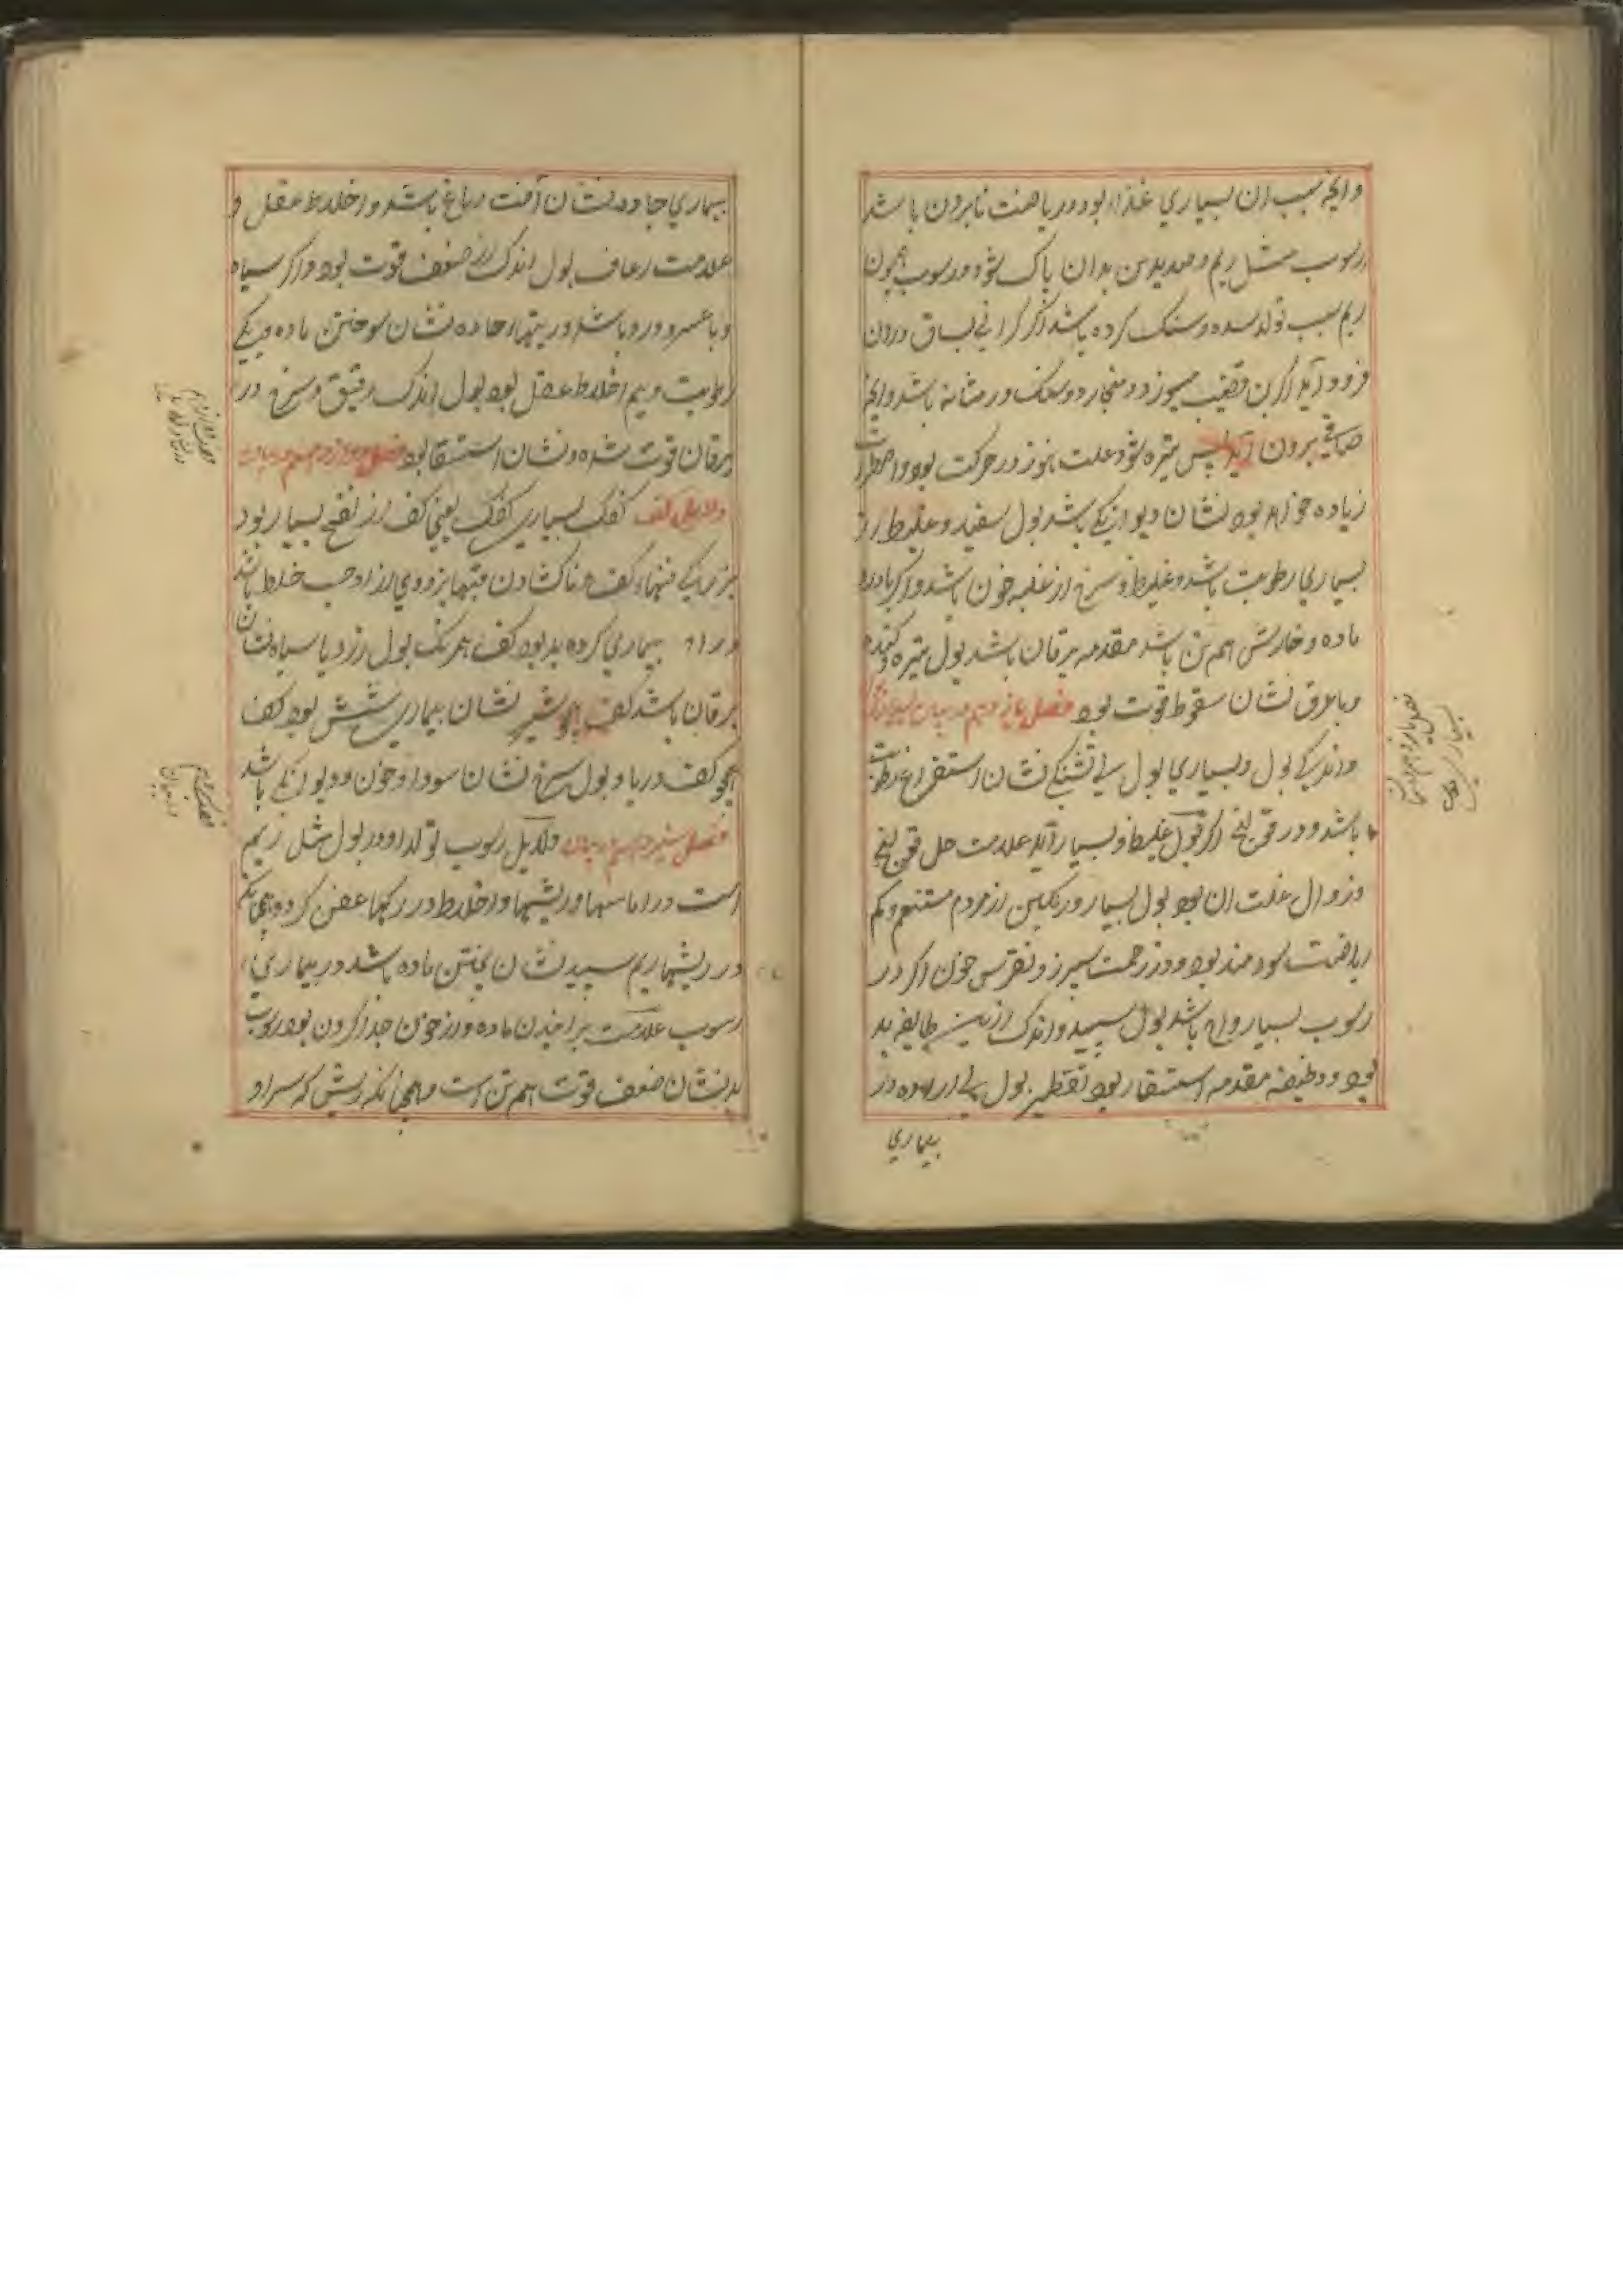 وانچه سبب ان بسیاری غذا بود و ریاضت نابردن باشد
رسوب مثل ریم و صدید تن بدان پاک شود و رسوب همچون
ریم سبب تولد سده و سنک کرده باشد اگر کرانی بساق و ران
فرود آید اگر بن قضیب میسوزد و میخارد و سنک در مثانه باشد وانچه
صافی برون آید پس تیره شود علت هنوز در حرکت بود و اضطراب
زیاده خواهد بود نشان دیوانکی باشد بول سفید و غلیظ از
بسیاری رطوبت باشد و غلیظ و سرخ از غلبه خون باشد و اگر با درد
ماده و خارش هم تن باشد مقدمه یرقان باشد بول تیره و کنده
و با عرق نشان سقوط قوت بود فصل یازدهم در بیان بسیاری
و اندکی بول و بسیاری بول بی تشنکی نشان استفراغ رطوبت
باشد و در قولنج اگر بول غلیظ و بسیار آید علامت حل قولنج
و زوال علت ان بود بول بسیار و رنکین از مردم متنعم و کم
ریاضت سودمند بود و در زحمت سپرز و نقرس چون اگر در
رسوب بسیار و خام باشد بول سپید و اندک ازین طایفه بد
بود و وظیفه مقدمه استسقا بود تقطیر بول بی اراده در
بیماری
فصل یازدهم در بیان
بسیاری بول
بیماری حاده نشان آفت دماغ باشد و اختلاط عقل و
علامت رعاف بول اندک از ضعف قوت بود و اگر سیاه
و با عسر و درد باشد و در تبهاء حاده نشان سوختن ماده و بیکی
رطوبت و بیم اختلاط عقل بود بول اندک رقیق و سرخ در
یرقان قوت شده و نشان استسقا بود فصل دوازدهم در بیان
دلایل کف کفک بسیاری کفک یعنی کف از نفخ بسیار بود
بزرکی قبها کف و ناکشادن قبها بزودی از لزوجت خلط باشد
و در بیماری کرده بد بود کف همرنک بول زرد یا سیاه نشان
یرقان باشد کف همچو شیر نشان بیماری شش بود کف
همچو کف دریا و بول سرخ نشان سودا و خون و دیوانکی باشد
فصل سیزدهم در بیان دلایل رسوب تولد او در بول مثل ریم
است در اماسها و ریشها و اخلاط در رکها عفن کرده و همچنانکه
در ریشها ریم سپید نشان پختن ماده باشد در بیماری
رسوب علامت پزانیدن ماده و از خون جدا کردن بود رسوب
بد نشان ضعف قوت هم تن است و همچنانکه ریش که سر او